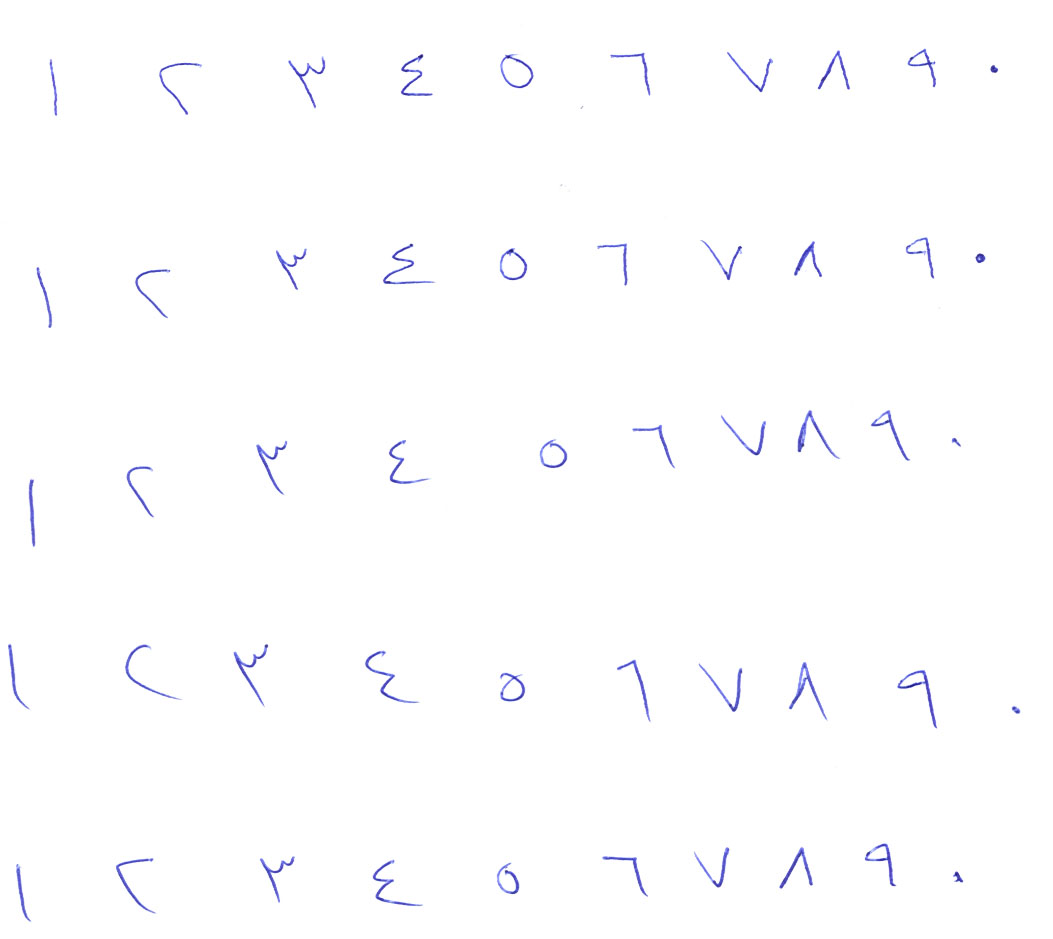 ١ ٢ ٣ ٤ ٥ ٦ ٧ ٨ ٩ ٠
١ ٢ ٣ ٤ ٥ ٦ ٧ ٨ ٩ ٠
١ ٢ ٣ ٤ ٥ ٦ ٧ ٨ ٩ ٠
١ ٢ ٣ ٤ ٥ ٦ ٧ ٨ ٩ ٠
١ ٢ ٣ ٤ ٥ ٦ ٧ ٨ ٩ ٠